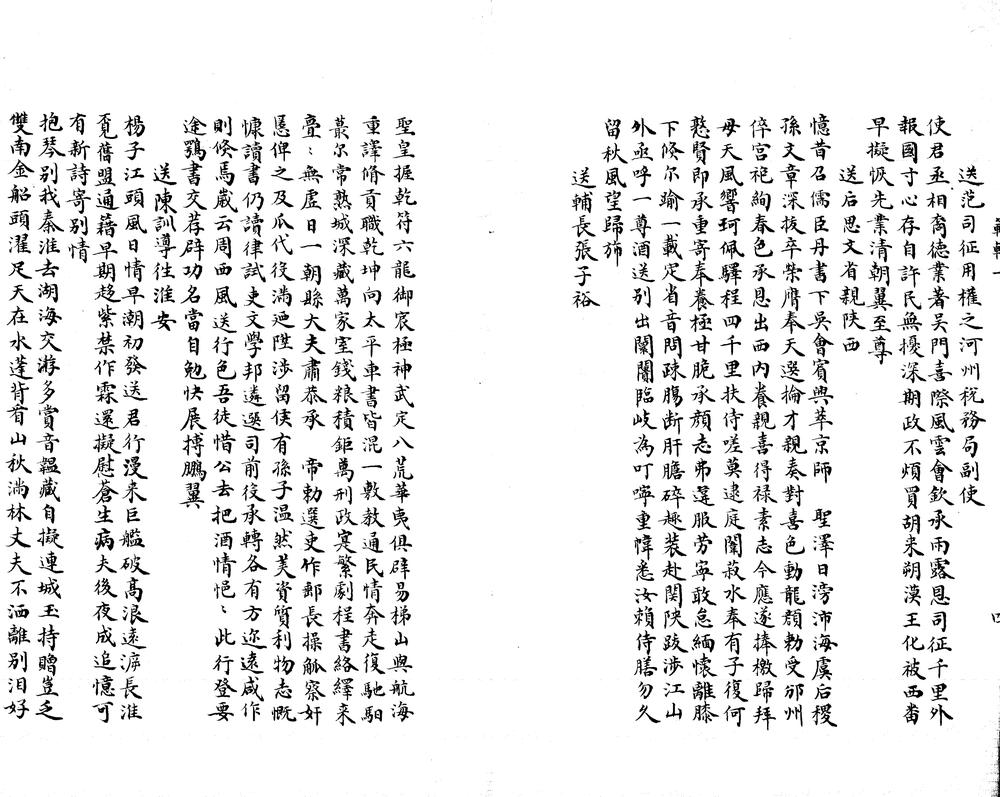 送范司征用權之河州稅務局副使
使君丞相裔德業著吴門喜際風雲會欽承雨露恩司征千里外
報國寸心存自許民無擾深期政不煩買胡来朔漠王化被西畨
早擬恢先業清朝翼至尊
送后思文省親陕西
憶昔召儒臣丹書下吳會賓興萃京師 聖澤日滂沛海虞后稷
孫文章深拔卒榮膺奉天選掄才親奏對喜色動龍顔勑受邠州
倅宫祀絢春色承恩出西内養親喜得禄素志今應遂捧檄歸拜
母天風響珂佩驛程四千里扶侍嗟莫逮庭闈菽水奉有子復何
憖賢即承重寄奉養極甘脆承顔志弗違服劳寧敢怠緬懷離膝
下倏尔瑜一載定省音問疎腸断肝膽碎趣装赴関陕跋渉江山
外丞呼一尊酒送别出闤闠臨岐為叮嚀重幃悉汝賴侍膳勿久
留秋風望歸斾
送輔長張子裕
聖皇握乾符六龍御宸極神武定八荒華夷俱辟易梯山與航海
重譯脩貢職乾坤向太平車書皆混一敷教通民情奔走復馳馹
蕞尔常熟城深藏萬家室錢粮積鉅萬刑政寔繁劇程書絡繹来
亹〻無虚日一朝縣大夫肅恭承 帝勑選吏作鄣長操觚察奸
慝俾之及瓜代役満廵陛涉留侯有孫子温然美資質利物志慨
慷讀書仍讀律試吏文學邦遴選司前後承轉各有方迩遠咸作
則倏焉歲云周西風送行色吾徒惜公去把酒情悒〻此行登要
途鶚書交荐辟功名當自勉快展搏鵬翼
送陳訓導往淮安
楊子江頭風日情早潮初發送君行漫来巨艦破髙浪遠泝長淮
覓舊盟通藉早期趍紫禁作霖還擬慰蒼生病夫後夜成追憶可
有新詩寄别情
抱琴别我秦淮去湖海交游多賞音韞藏自擬連城玉持贈豈乏
雙南金船頭濯足天在水蓬背看山秋満林丈夫不洒離别泪好